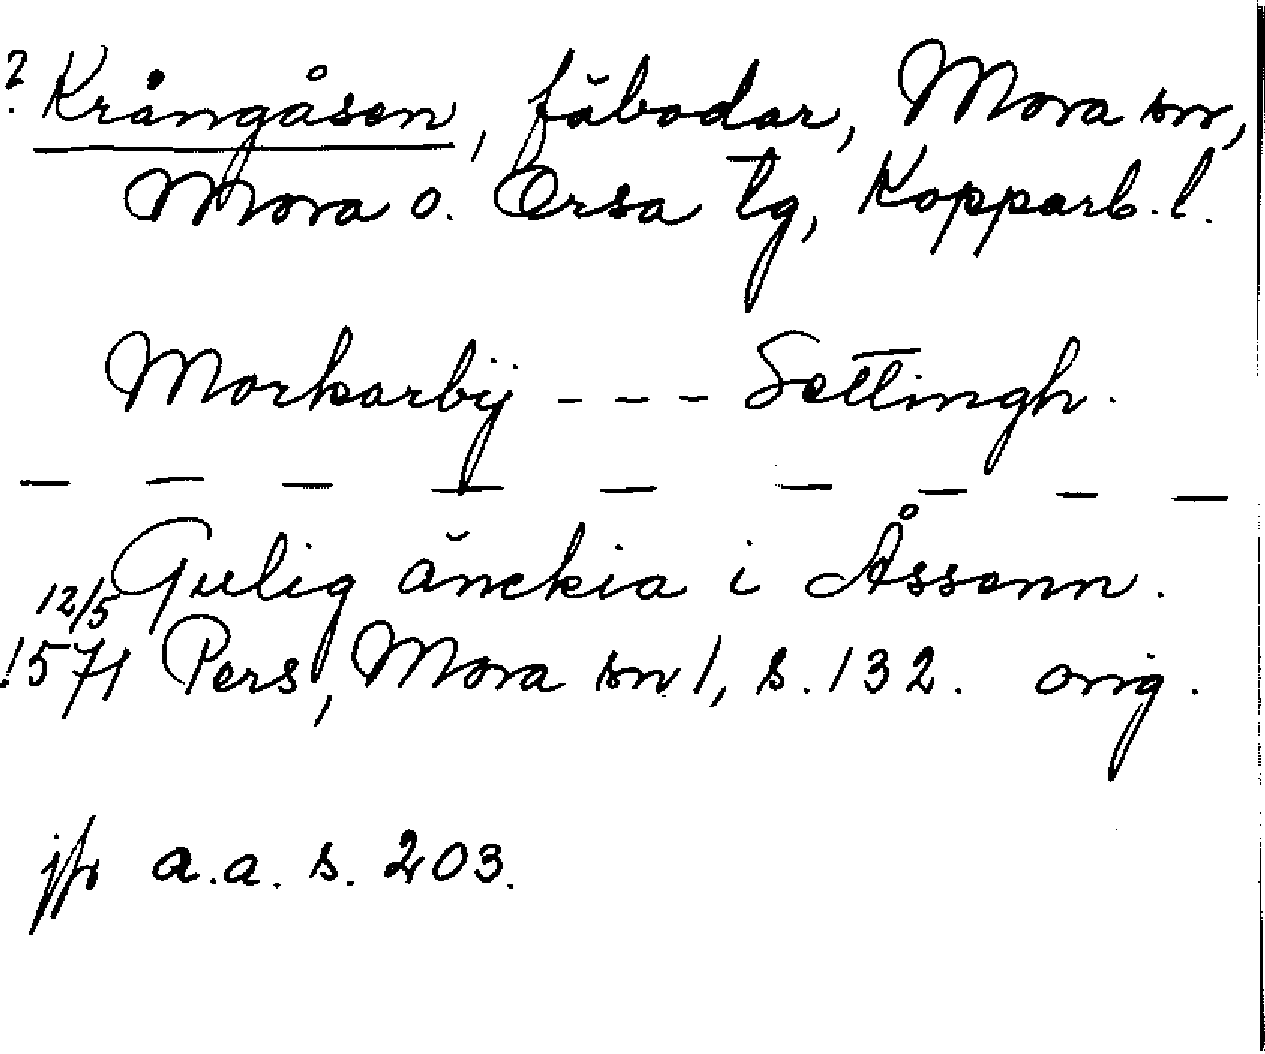 ? Krångåsen, fäbodar, Mora sn,
Mora o. Orsa tg, Kopparb. l.
Morkarbÿ - - - Settingh.
— — — — — — — — —
Gulig änckia i Åssenn.
12/5
1571 Pers, Mora sn 1, s. 132. orig.
jfr a.a. s. 203.